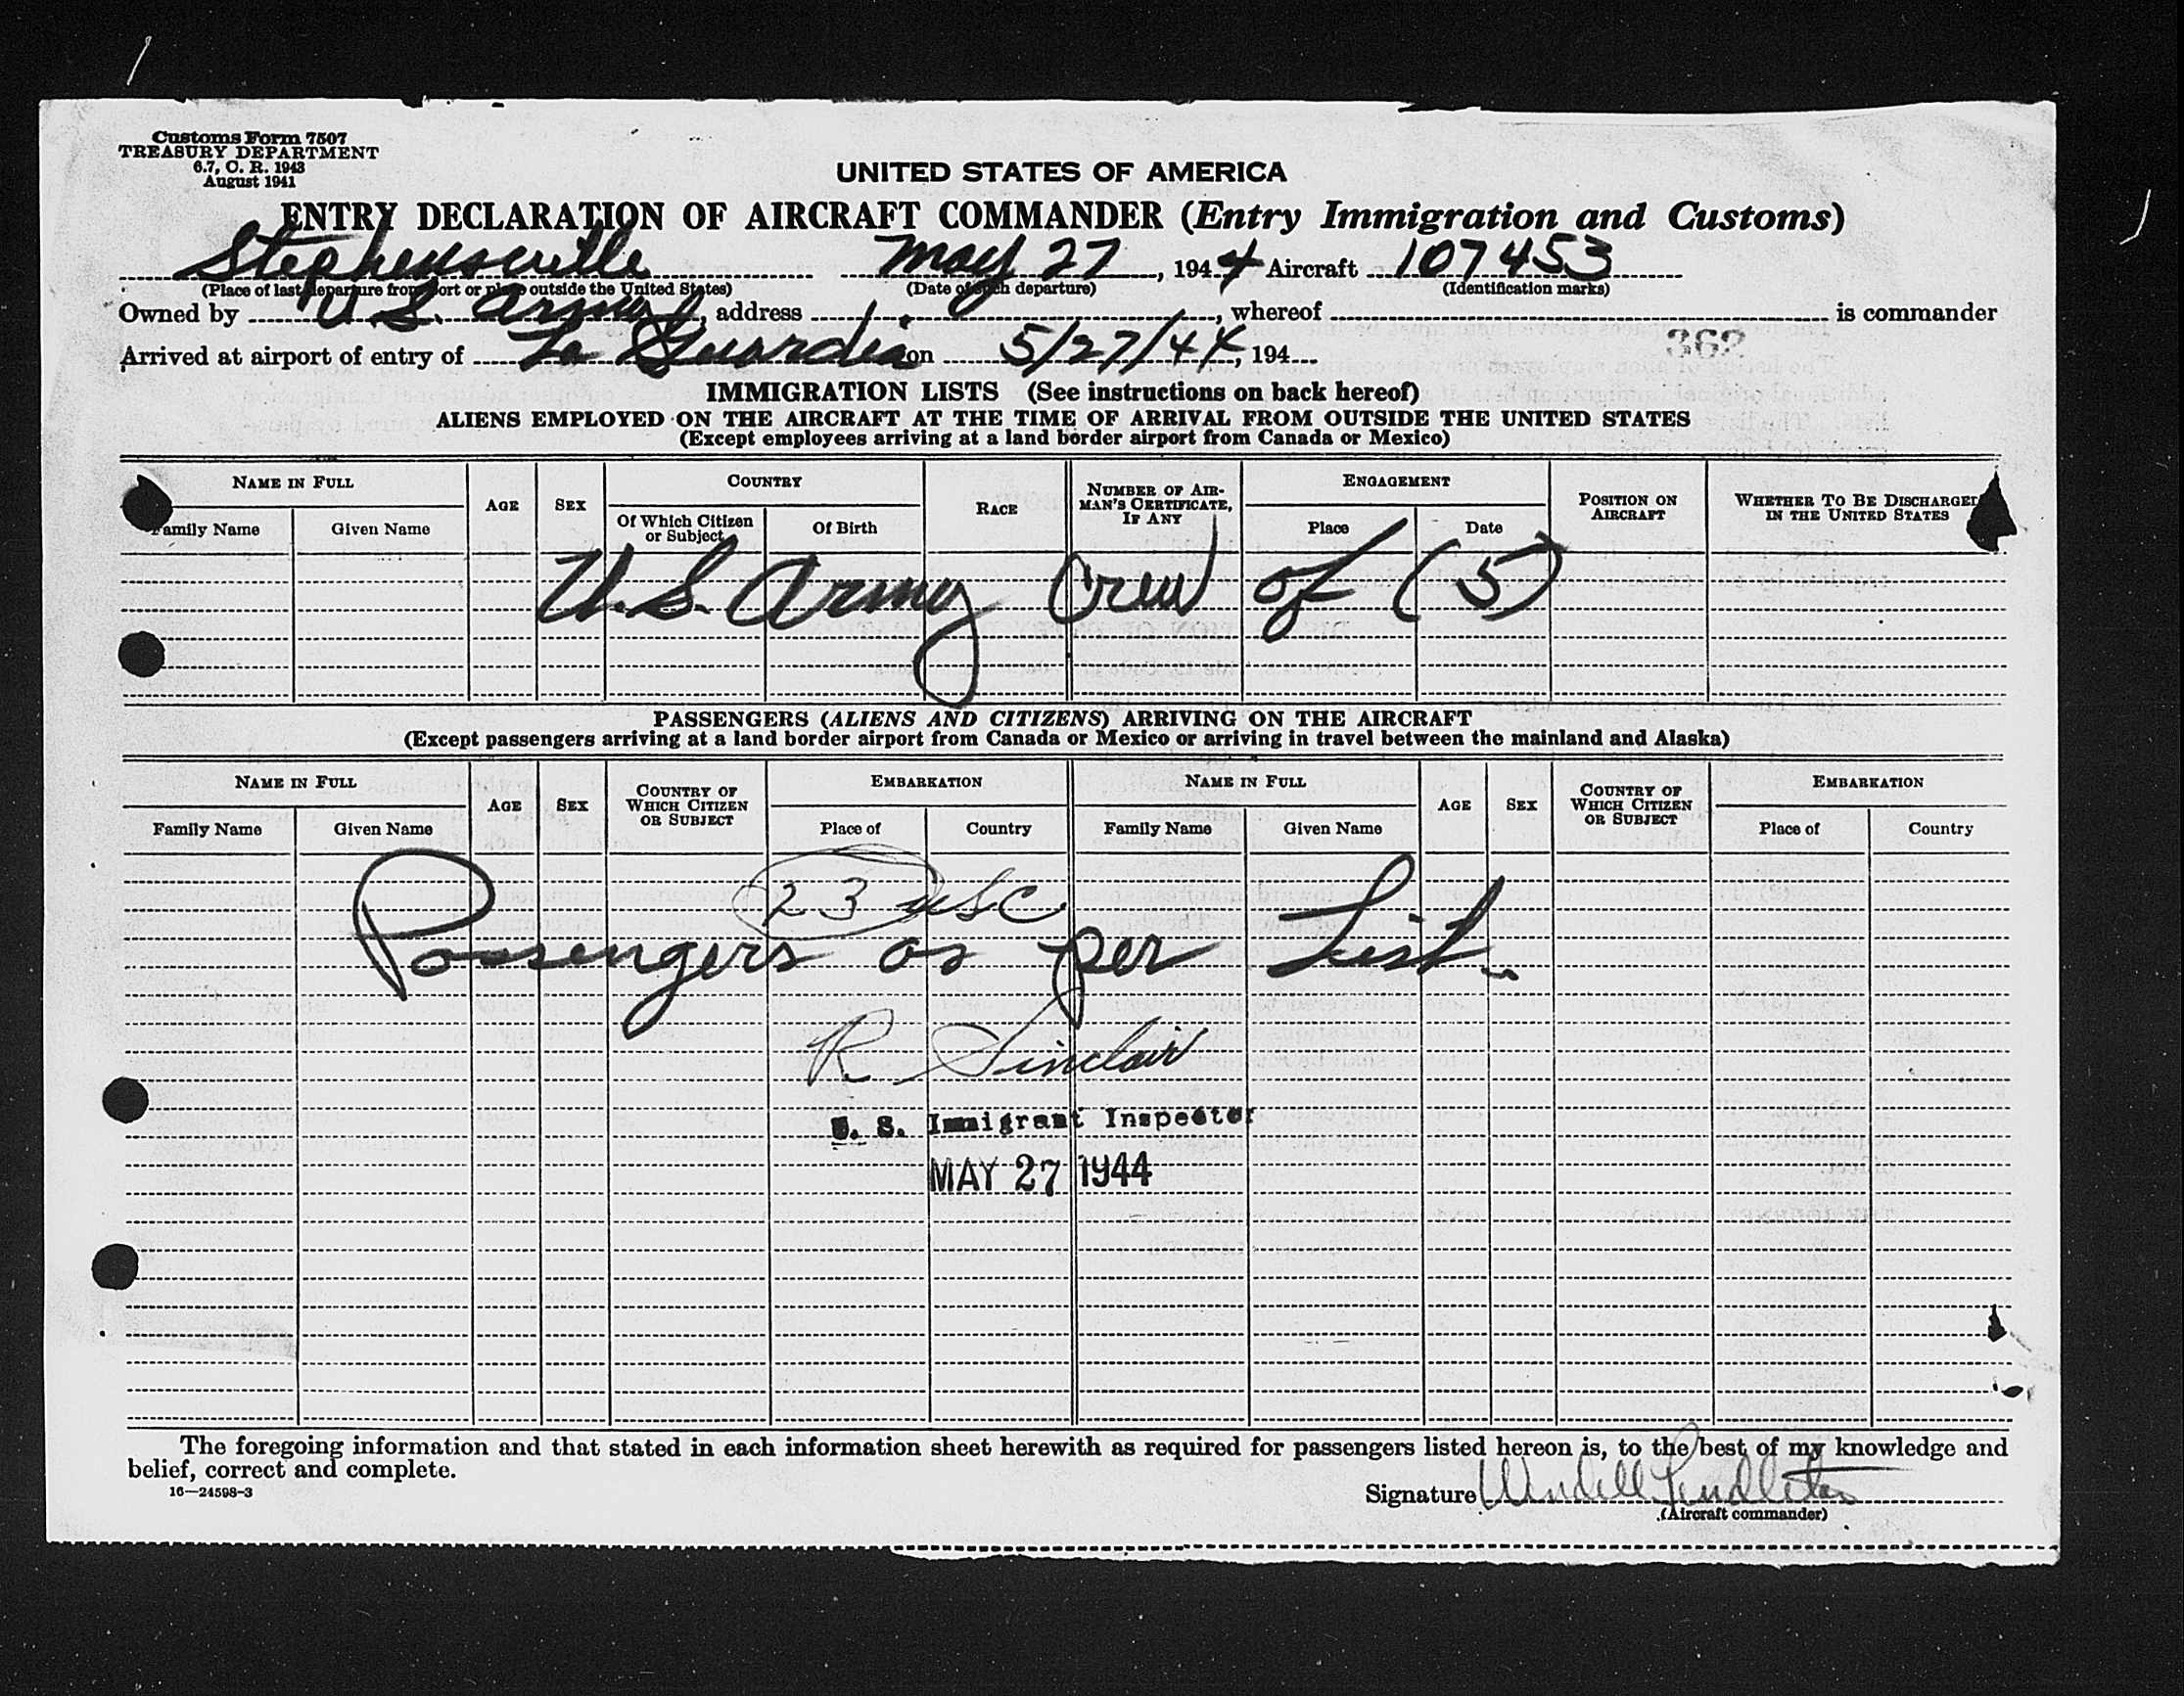 Customs Form 7507
TREASURY DEPARTMENT
6.7, C. R. 1943
August 1941
UNITED STATES OF AMERICA
ENTRY DECLARATION OF AIRCRAFT COMMANDER (Entry Immigration and Customs)
Stephensville May 27, 1944 Aircraft 107453
(Place of last departure from port or place outside the United States) (Date of such departure) (Identification marks)
Owned by U.S. Army, address , whereof is commander
Arrived at airport of entry of La Guardia on 5/27/44, 194
362
IMMIGRATION LISTS (See instructions on back hereof)
ALIENS EMPLOYED ON THE AIRCRAFT AT THE TIME OF ARRIVAL FROM OUTSIDE THE UNITED STATES
(Except employees arriving at a land border airport from Canada or Mexico)
NAME IN FULL AGE SEX COUNTRY RACE NUMBER OF AIRMAN'S CERTIFICATE, IF ANY ENGAGEMENT POSITION ON AIRCRAFT WHETHER TO BE DISCHARGED IN THE UNITED STATES
Family Name Given Name Of Which Citizen or Subject Of Birth Place Date
U.S. Army Crew of (5)
PASSENGERS (ALIENS AND CITIZENS) ARRIVING ON THE AIRCRAFT
(Except passengers arriving at a land border airport from Canada or Mexico or arriving in travel between the mainland and Alaska)
NAME IN FULL AGE SEX COUNTRY OF WHICH CITIZEN OR SUBJECT EMBARKATION NAME IN FULL AGE SEX COUNTRY OF WHICH CITIZEN OR SUBJECT EMBARKATION
Family Name Given Name Place of Country Family Name Given Name Place of Country
23 USC
Passengers as per List
R. Sinclair
U. S. Immigrant Inspector
MAY 27 1944
The foregoing information and that stated in each information sheet herewith as required for passengers listed hereon is, to the best of my knowledge and
belief, correct and complete.
16—24598-3
Signature Wendell Pendleton
(Aircraft commander)